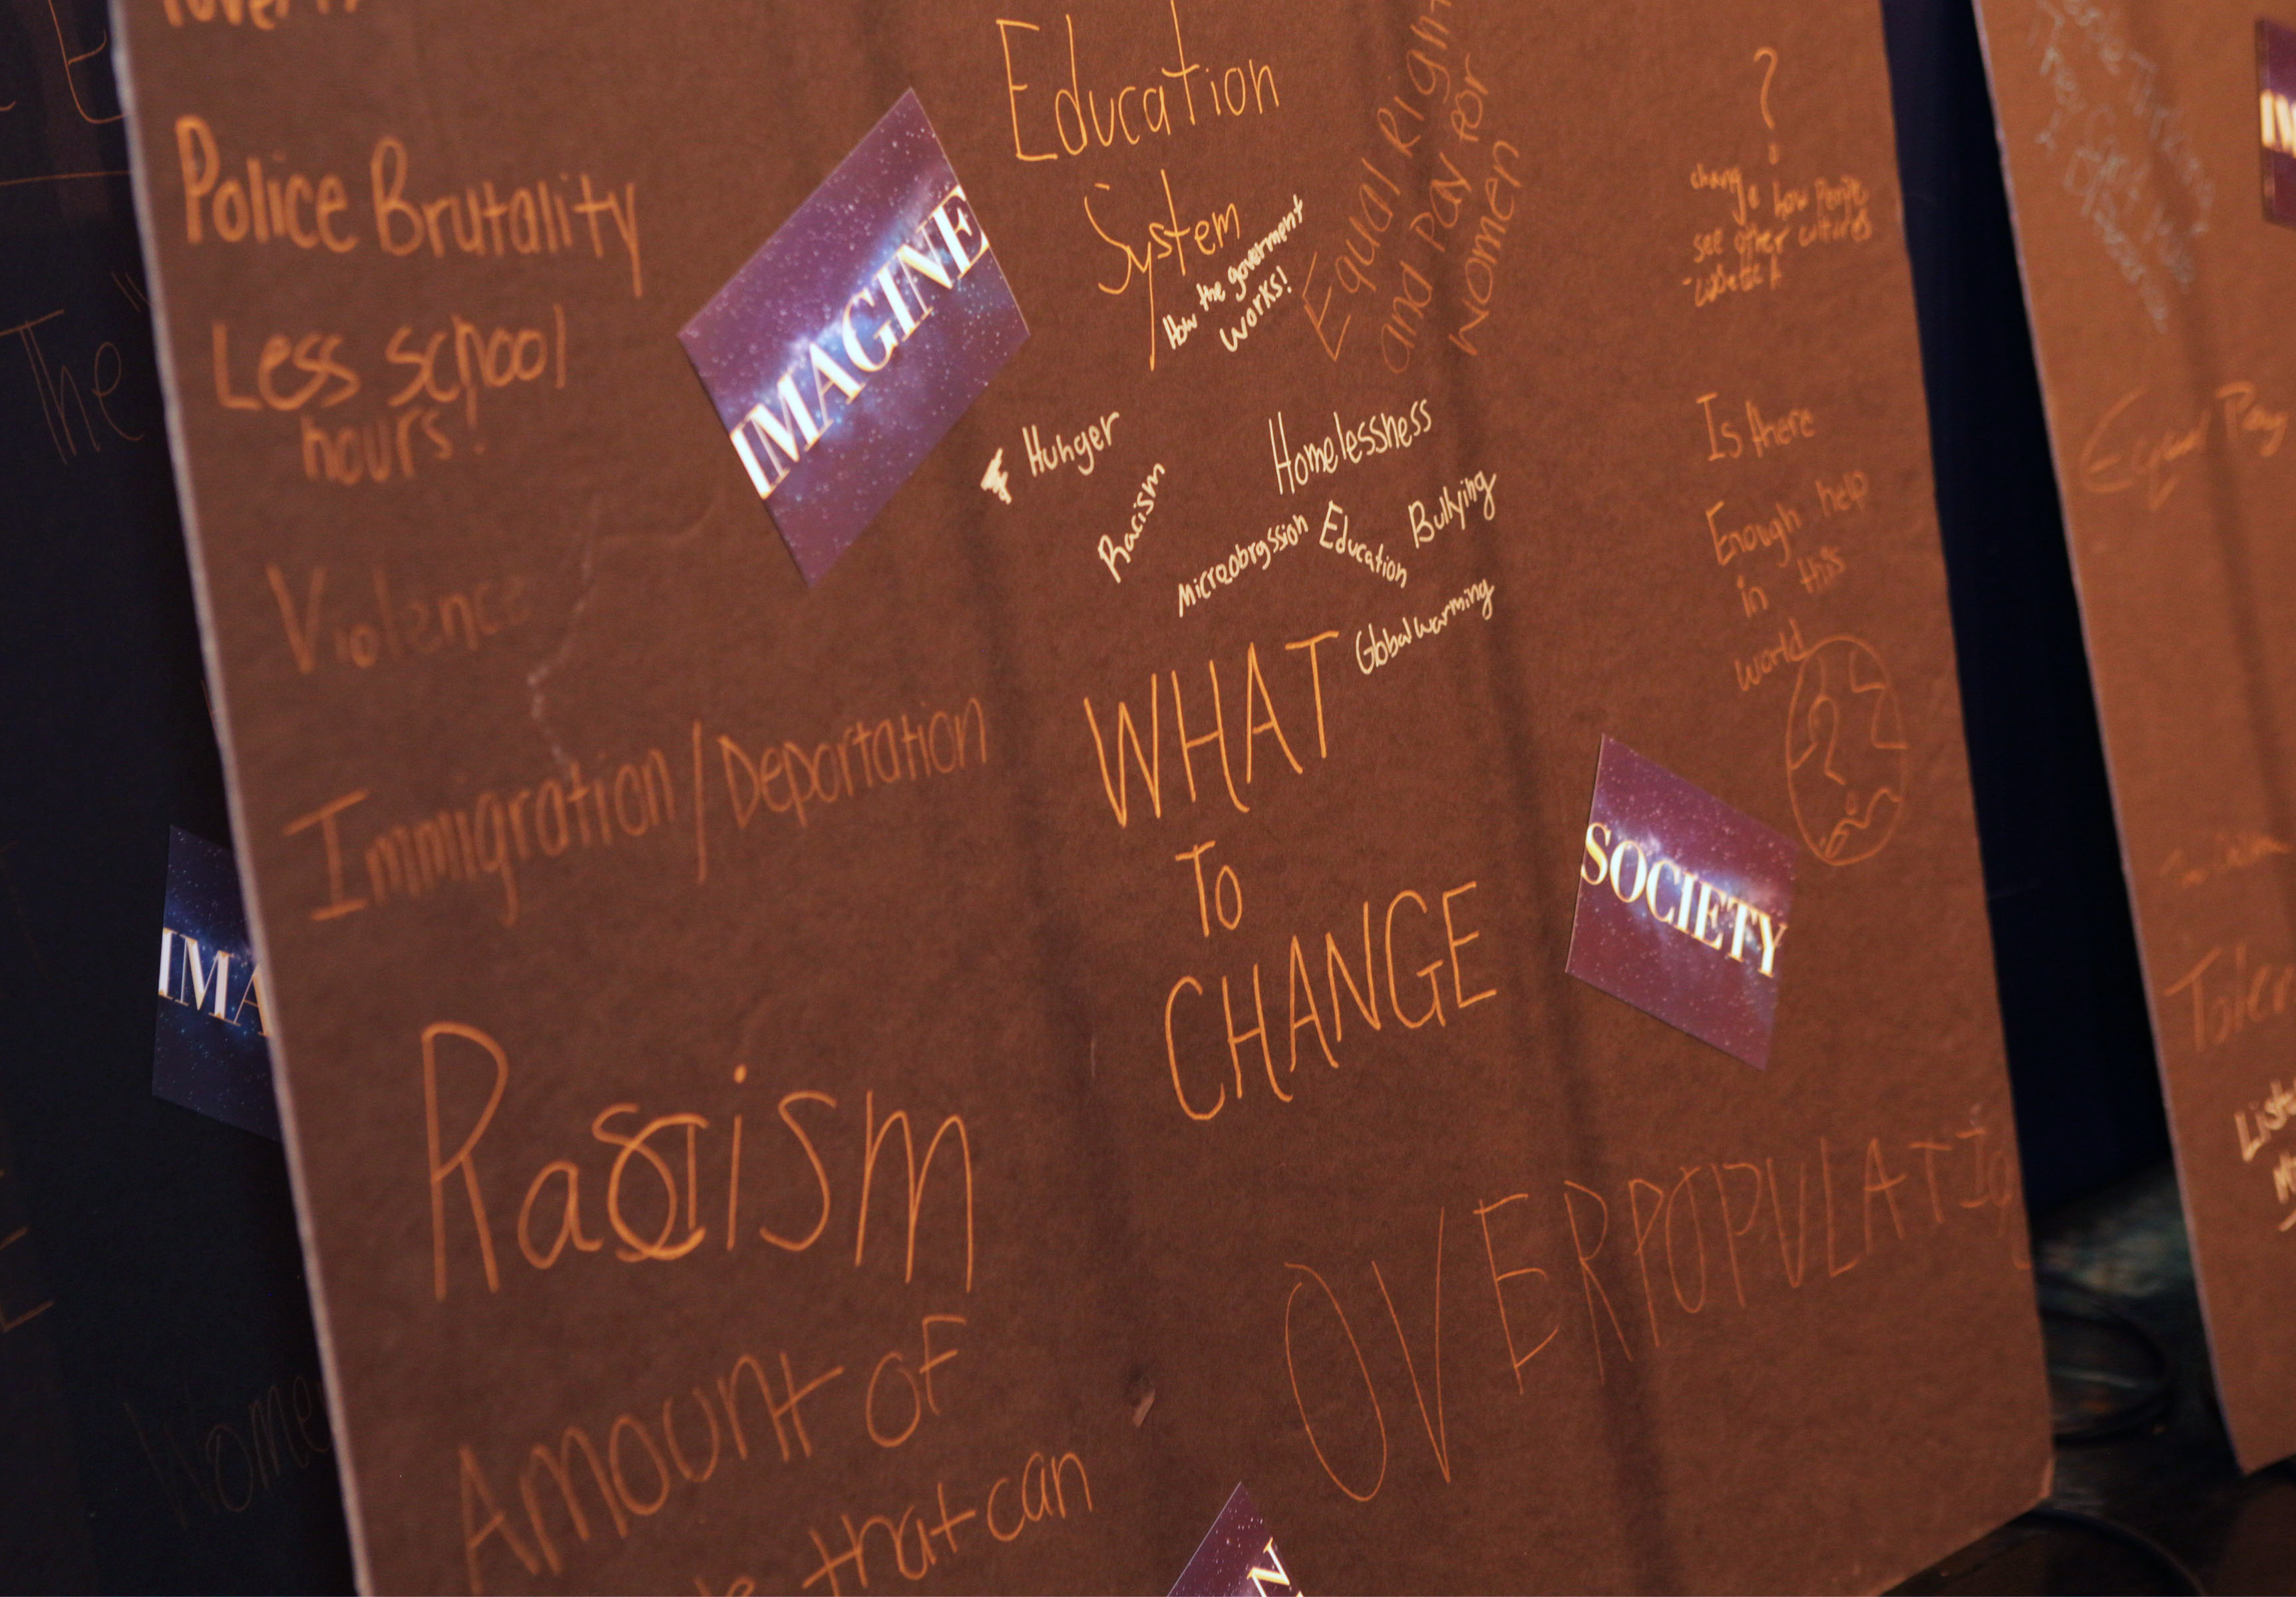 Police Brutality
Less school
hours!
Violence
Immigration/Deportation
Racism
Amount of
that can
IMAGINE
Education
System
How the goverment
works!
Equal Right
and Pay for
Women
Hunger
Racism
Homelessness
Microobrgssion
Education
Bullying
Global warming
WHAT
To
CHANGE
OVERPOPULATIO
?
change how people
see other cultures
Is there
Enough help
in this
world
?
SOCIETY
N
The
IMA
Women
Equal Pay
Toler
List